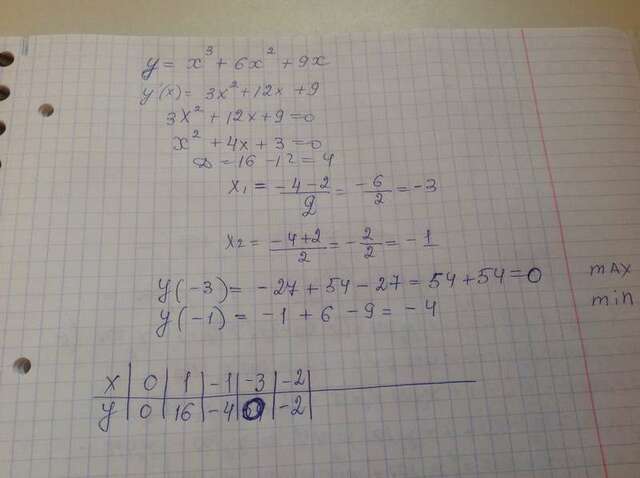 y = x³ + 6x² + 9x
y'(x) = 3x² + 12x + 9
3x² + 12x + 9 = 0
x² + 4x + 3 = 0
D = 16 - 12 = 4
x₁ = (-4-2)/2 = -6/2 = -3
x₂ = (-4+2)/2 = -2/2 = -1
y(-3) = -27 + 54 - 27 = 54 + 54 = 0 max
y(-1) = -1 + 6 - 9 = -4 min
x | 0 | 1 | -1 | -3 | -2
y | 0 | 16 | -4 | 0 | -2